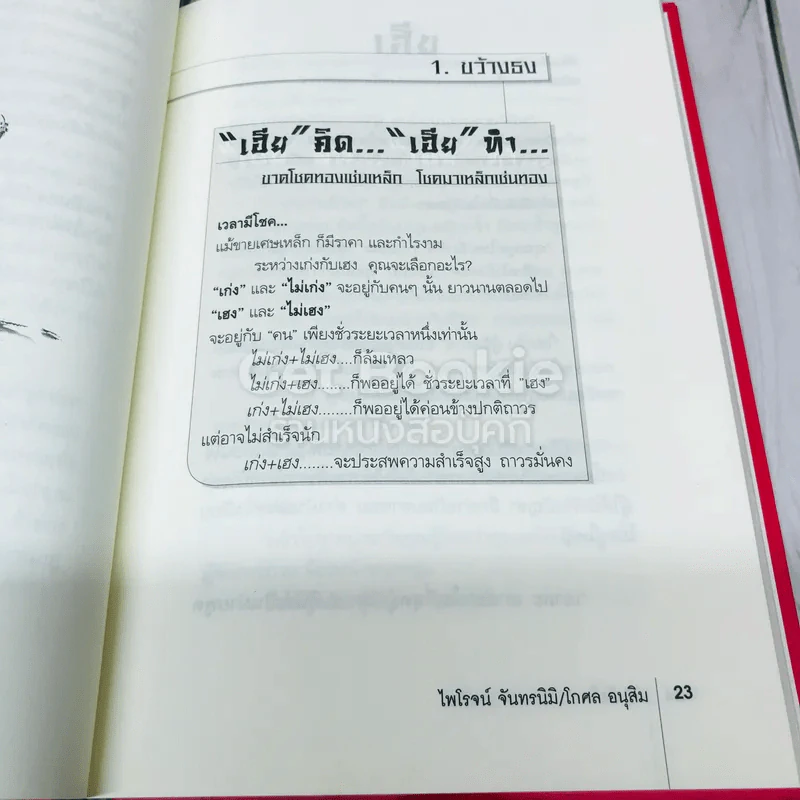 1. ขว้างธง
“เฮีย” คิด... “เฮีย” ทำ...
ขาดโชคทองเช่นเหล็ก โชคมาเหล็กเช่นทอง
เวลามีโชค...
แม้ขายเศษเหล็ก ก็มีราคา และกำไรงาม
ระหว่างเก่งกับเฮง คุณจะเลือกอะไร?
“เก่ง” และ “ไม่เก่ง” จะอยู่กับคนๆ นั้น ยาวนานตลอดไป
“เฮง” และ “ไม่เฮง”
จะอยู่กับ “คน” เพียงชั่วระยะเวลาหนึ่งเท่านั้น
ไม่เก่ง+ไม่เฮง....ก็ล้มเหลว
ไม่เก่ง+เฮง........ก็พออยู่ได้ ชั่วระยะเวลาที่ “เฮง”
เก่ง+ไม่เฮง........ก็พออยู่ได้ค่อนข้างปกติถาวร
แต่อาจไม่สำเร็จนัก
เก่ง+เฮง........จะประสพความสำเร็จสูง ถาวรมั่นคง
Get Bookie
ร้านหนังสือบุ๊คกี้
ไพโรจน์ จันทรนิมิ/โกศล อนุสิม 23